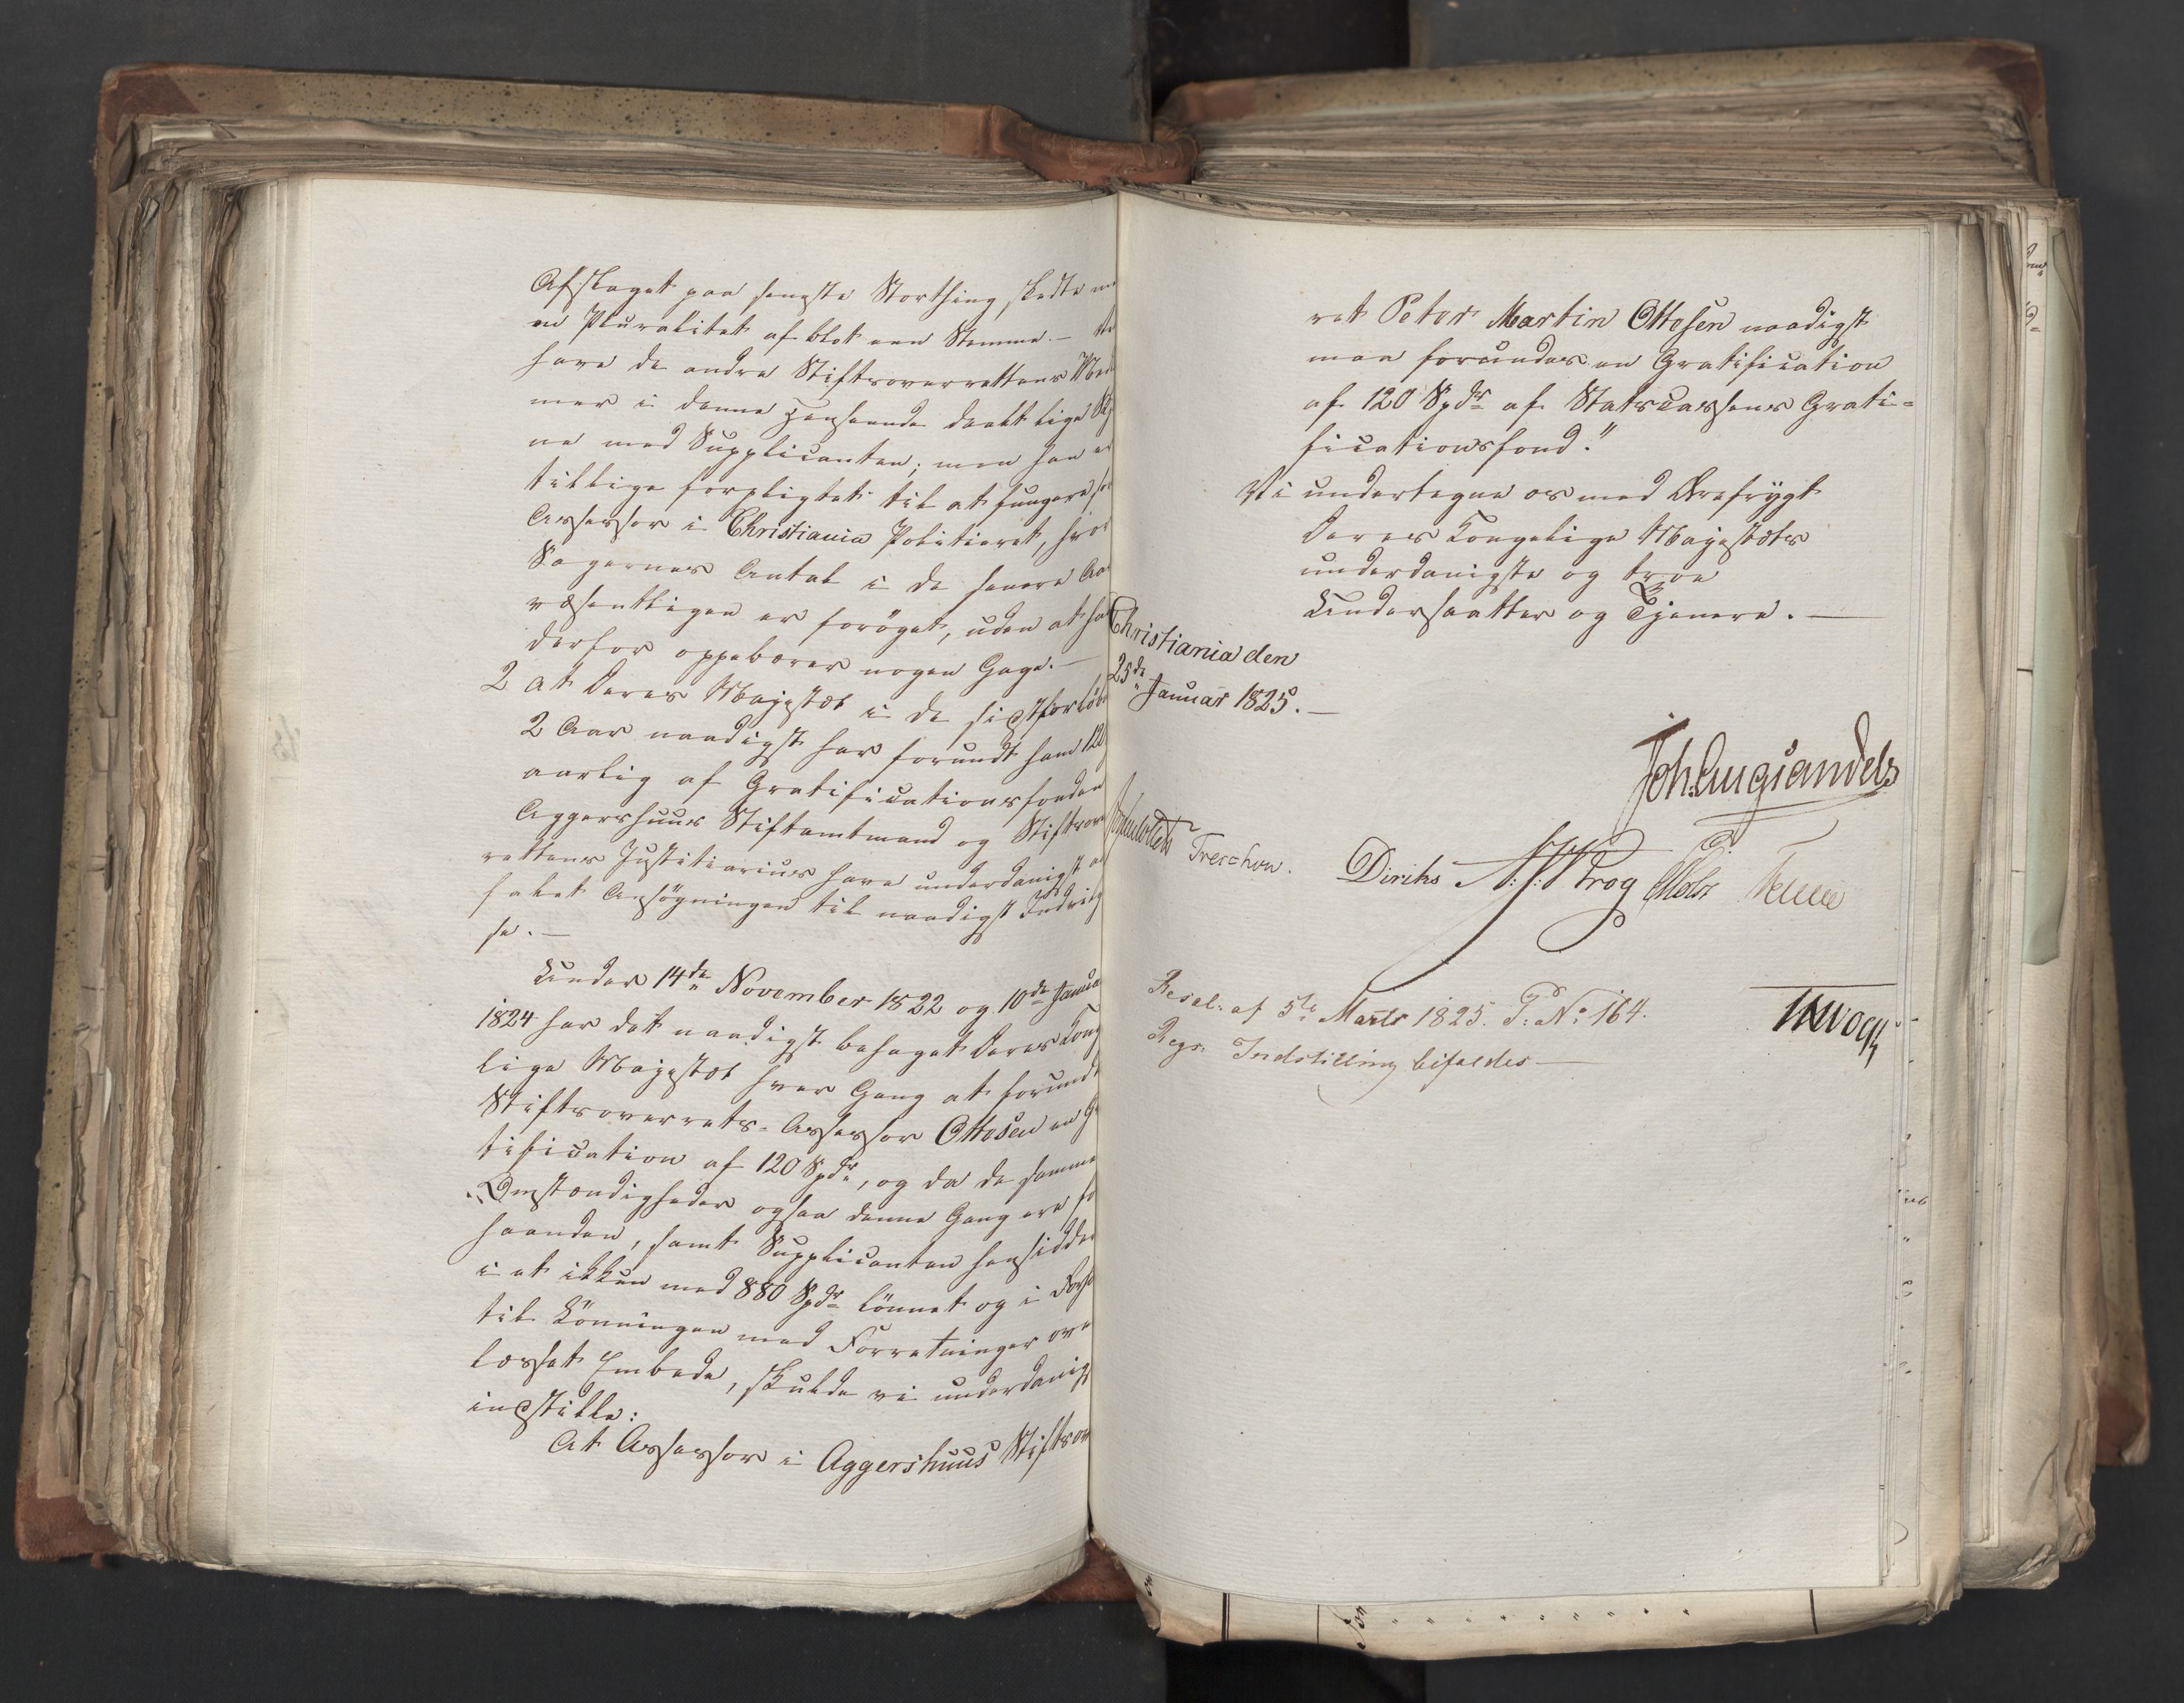 Afslaget paa seneste Storthing, skedte
en Pluralitet af blot een Stemme. —
have de andre Stiftsoverrettens Med
mer i denne Henseende deelt lige
ne med Supplicanten; men han er
tillige forpligtet til at fungere
Assessor i Christiania Politieret, hvor
Sagernes Antal i de senere Aa
væsentligen er forøget, uden at ha
derfor oppebærer nogen Gage. —
2 at Deres Majestæt i de sidstforløb
2 Aar naadigst har forundt ham 120
aarlig af Gratificationsfonden
Aggershuus Stiftamtmand og Stiftsove
rettens Justitiarius have underdanigst
falet Ansøgningen til naadigst Indvilg
se. —
Under 14de November 1822 og 10de Janua
1824 har det naadigst behaget Deres Konge
lige Majestæt hver Gang at forunde
Stiftsoverrets-Assessor Ottosen en G
tification af 120 Spdr, og da de samme
Omstændigheder ogsaa denne Gang ere fo
haanden, samt Supplicanten hensidder
i et ikkun med 880 Spdr lønnet og i Forho
til Lønningen med Forretninger ove
læsset Embede, skulde vi underdanigs
indstille:
At Assessor i Aggershuus Stiftsove
ret Peter Martin Ottosen naadigst
maa forundes en Gratification
af 120 Spdr af Statscassens Grati=
ficationsfond."
Vi undertegne os med Ærefrygt
Deres Kongelige Majestæts
underdanigste og troe
Undersaatter og Tjenere. —
Christiania den
25de Januar 1825. —
Joh: Aug: Sandels
Treschow. Diriks Krog
Resol: af 5te Marts 1825. P: No 164.
Regs. Indstilling bifaldes —